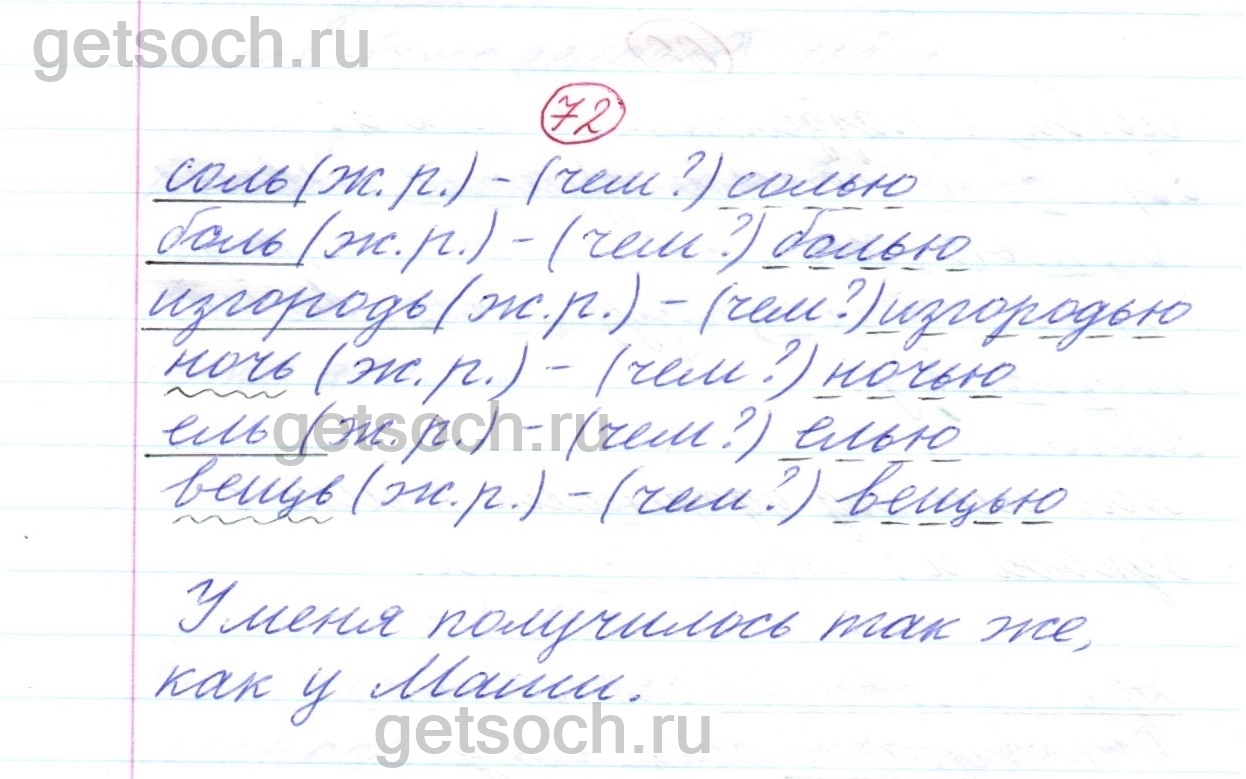 getsoch.ru
72
соль (ж.р.) - (чем?) солью
боль (ж.р.) - (чем?) болью
изгородь (ж.р.) - (чем?) изгородью
ночь (ж.р.) - (чем?) ночью
getsoch.ru
ель (ж.р.) - (чем?) елью
вещь (ж.р.) - (чем?) вещью
У меня получилось так же,
как у Маши.
getsoch.ru